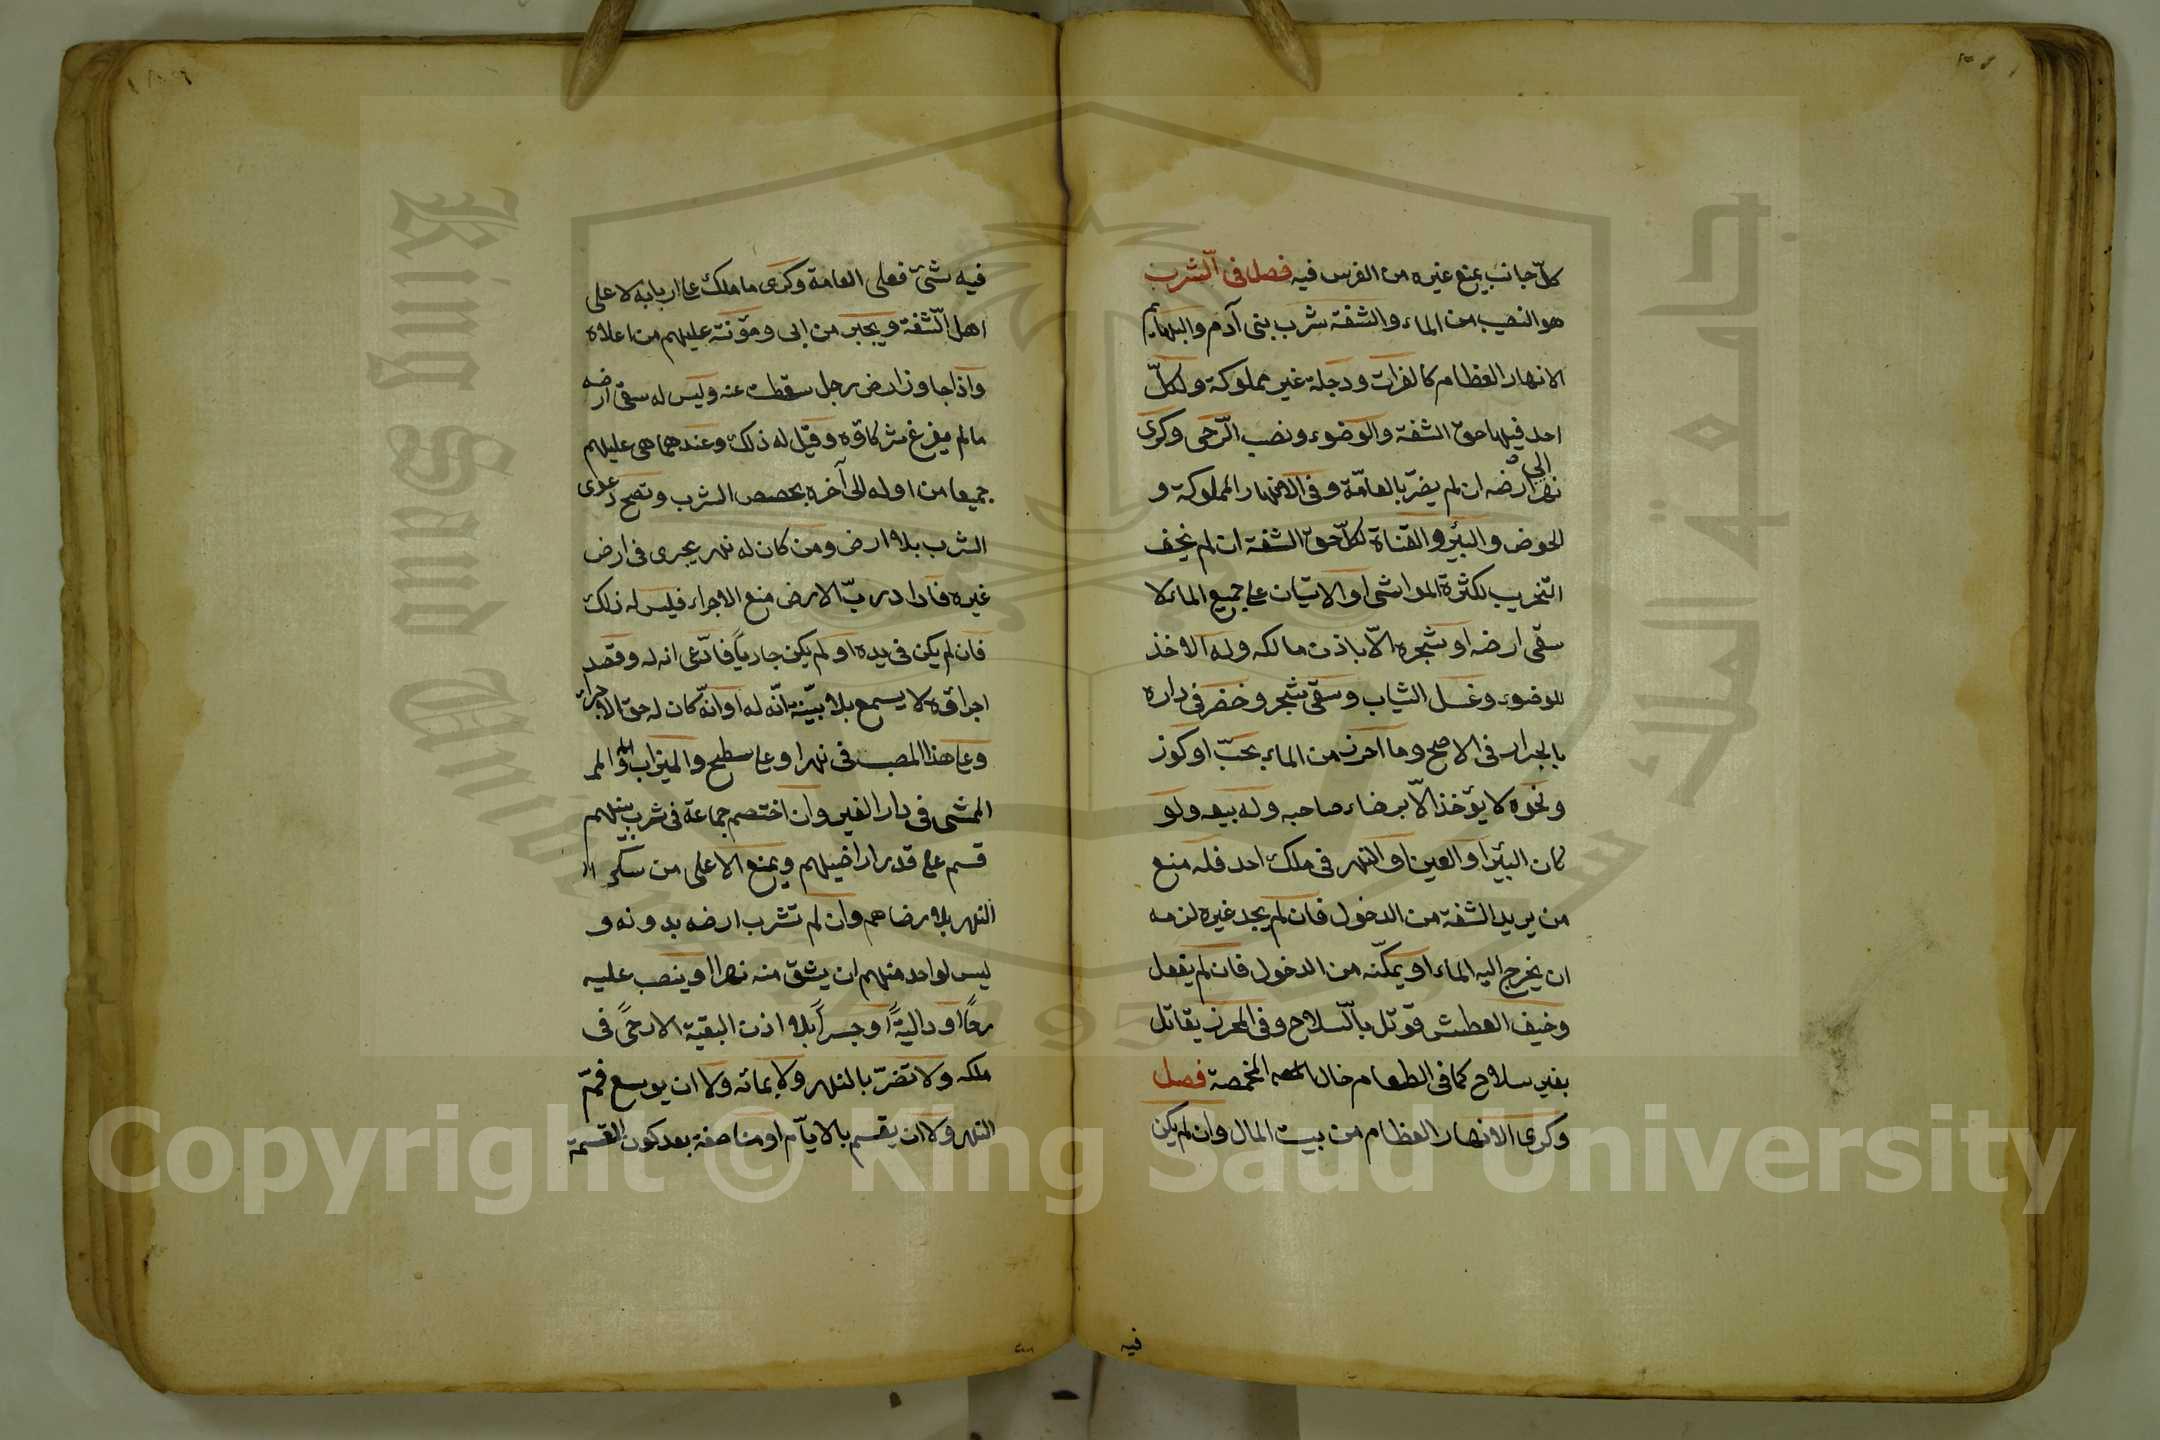 كلّ جانب يمنع غيره من الغرس فيه فصل فى الّشرب
هو النصيب من الماء والشفة شرب بنى آدم والبهايم
الانهار العظام كالفرات ودجلة غير مملوكة ولكلّ
احد فيها حق الشفة والوضوء ونصب الرّحى وكرى
نهر الى ارضه ان لم يضرّ بالعامّة وفى الانهار المملوكة و
الحوض والبئر والقناة لكلّ حقّ الشفة ان لم يخف
التخريب لكثرة المواشى او الاتيان على جميع الماء لا
سقى ارضه او شجره الّا باذن مالكه وله الاخذ
للوضوء وغسل الثياب وسقى شجر وخضر فى داره
بالجرار فى الاصح وما احرز من الماء بحبّ او كوز
ونحوه لا يؤخذ الّا برضاء صاحبه وله بيعه ولو
كان البئر او العين او النهر فى ملك احد فله منع
من يريد الشفة من الدخول فان لم يجد غيره لزمه
ان يخرج اليه الماء او يمكّنه من الدخول فان لم يفعل
وخيف العطش قوتل بالّسلاح وفى المحرز يقاتل
بغير سلاح كما فى الطعام حال المخمصة فصل
وكرى الانهار العظام من بيت المال وان لم يكن
فيه
فيه شئ فعلى العامة وكرى ما ملك على اربابه لا على
اهل الّشفة ويجبر من ابى ومؤنته عليهم من اعلاه
واذا جاوز ارض رجل سقطت عنه وليس له سقى ارضه
ما لم يفرغ شركاؤه وقيل له ذلك وعندهما هى عليهم
جميعا من اوله الى آخره بحصص الشرب وتصح دعوى
الشرب بلا ارض ومن كان له نهر يجرى فى ارض
غيره فاراد ربّ الارض منع الاجراء فليس له ذلك
فان لم يكن فى يده او لم يكن جارياً فادّعى انه له وقصد
اجراؤه لا يسمع بلا بيّنة انّه له او انّه كان له حق الاجراء
وعلى هذا المصب فى نهر او على سطح والميزاب والممر
الممشى فى دار الغير وان اختصم جماعة فى شرب بينهم
قسم على قدر اراضيهم ويمنع الاعلى من سكر
النهر بلا رضاهم وان لم تشرب ارضه بدونه و
ليس لواحد منهم ان يشقّ منه نهرا او ينصب عليه
رحاً او داليةً او جسراً بلا اذن البقية الا رحىً فى
ملكه ولا تضرّ بالنهر ولا بمائه ولا ان يوسع فمّ
النهر ولا ان يقسم بالايّام او مناصفة بعد كون القسمة
Copyright © King Saud University
King Saud University
جامعة الملك سعود
1957